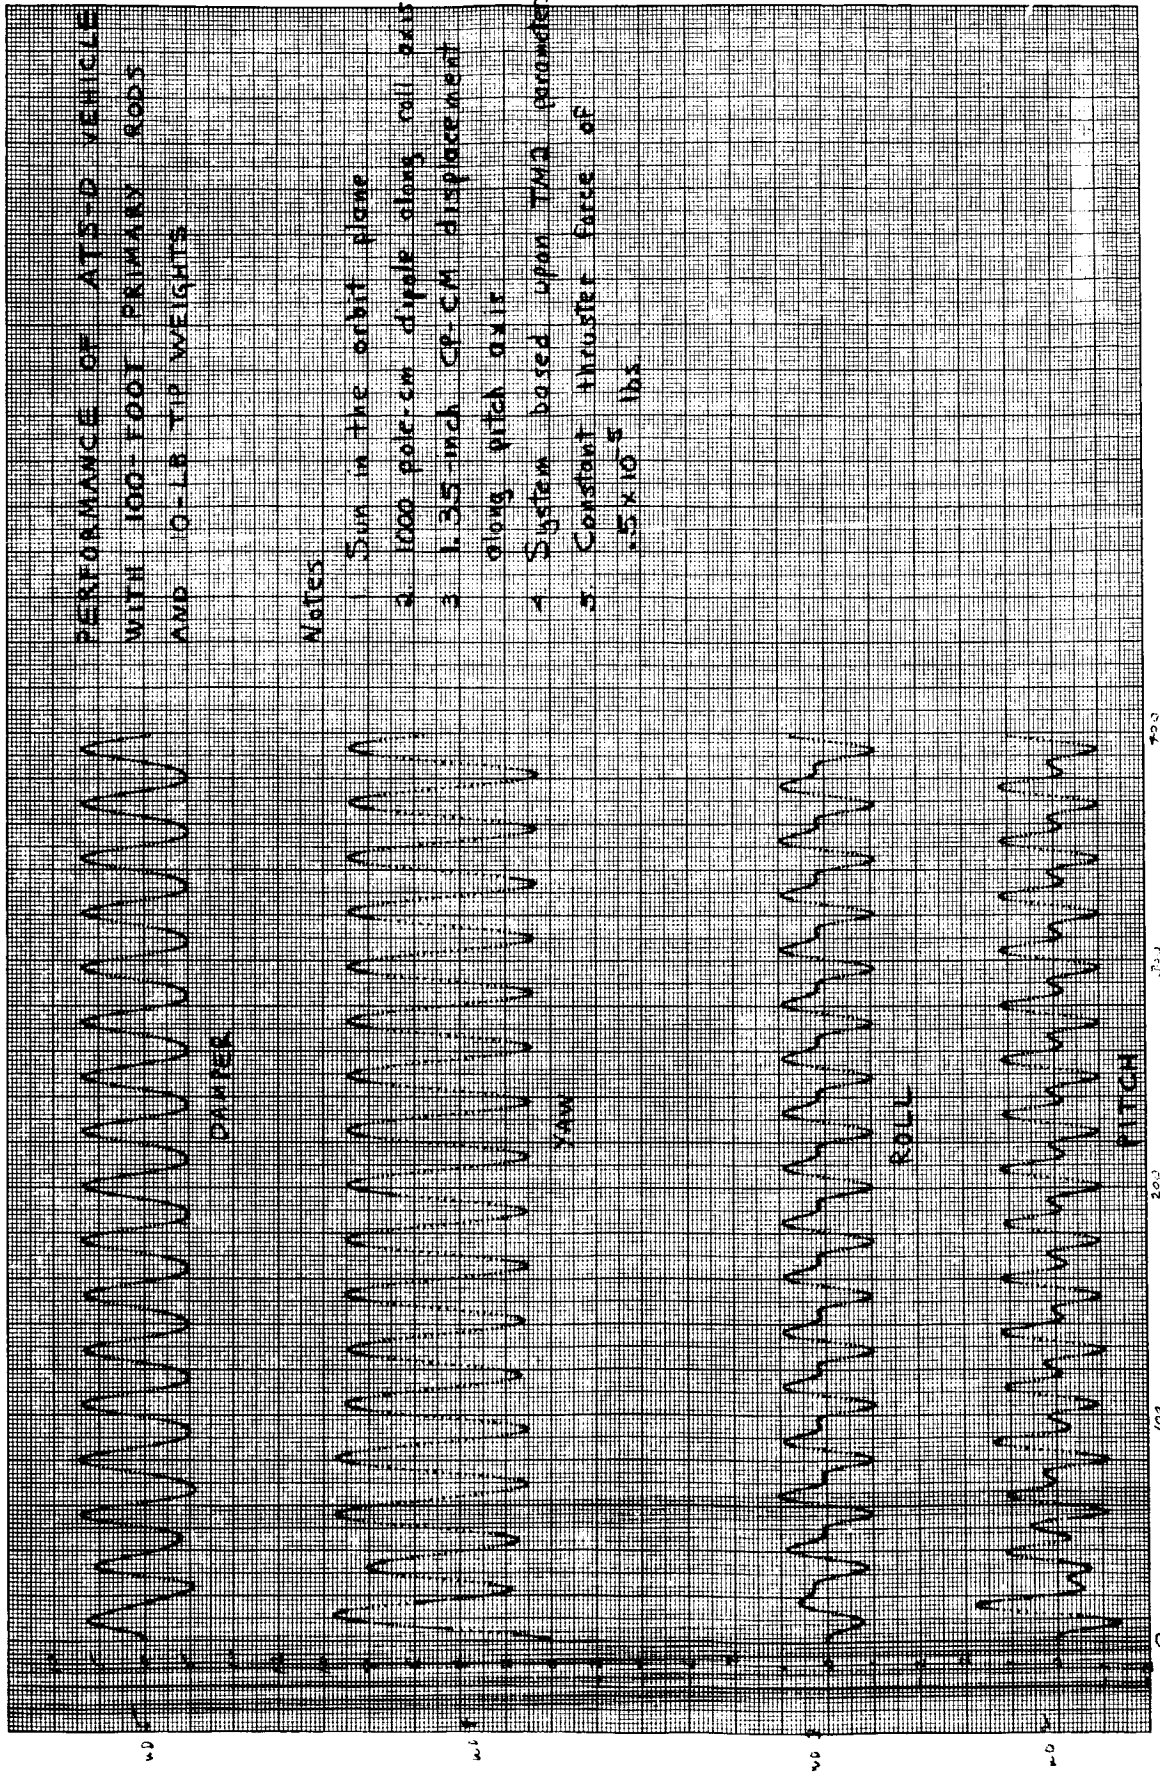 PERFORMANCE OF ATS-D VEHICLE
WITH 100-FOOT PRIMARY RODS
AND 10-LB TIP WEIGHTS
Notes
1 Sun in the orbit plane
2. 1000 pole-cm dipole along roll axis
3 1.35-inch CP-CM displacement
along pitch axis
4 System based upon TM2 parameter
5. Constant thruster force of
.5 x 10-5 lbs.
DAMPER
YAW
ROLL
PITCH
0
200
400